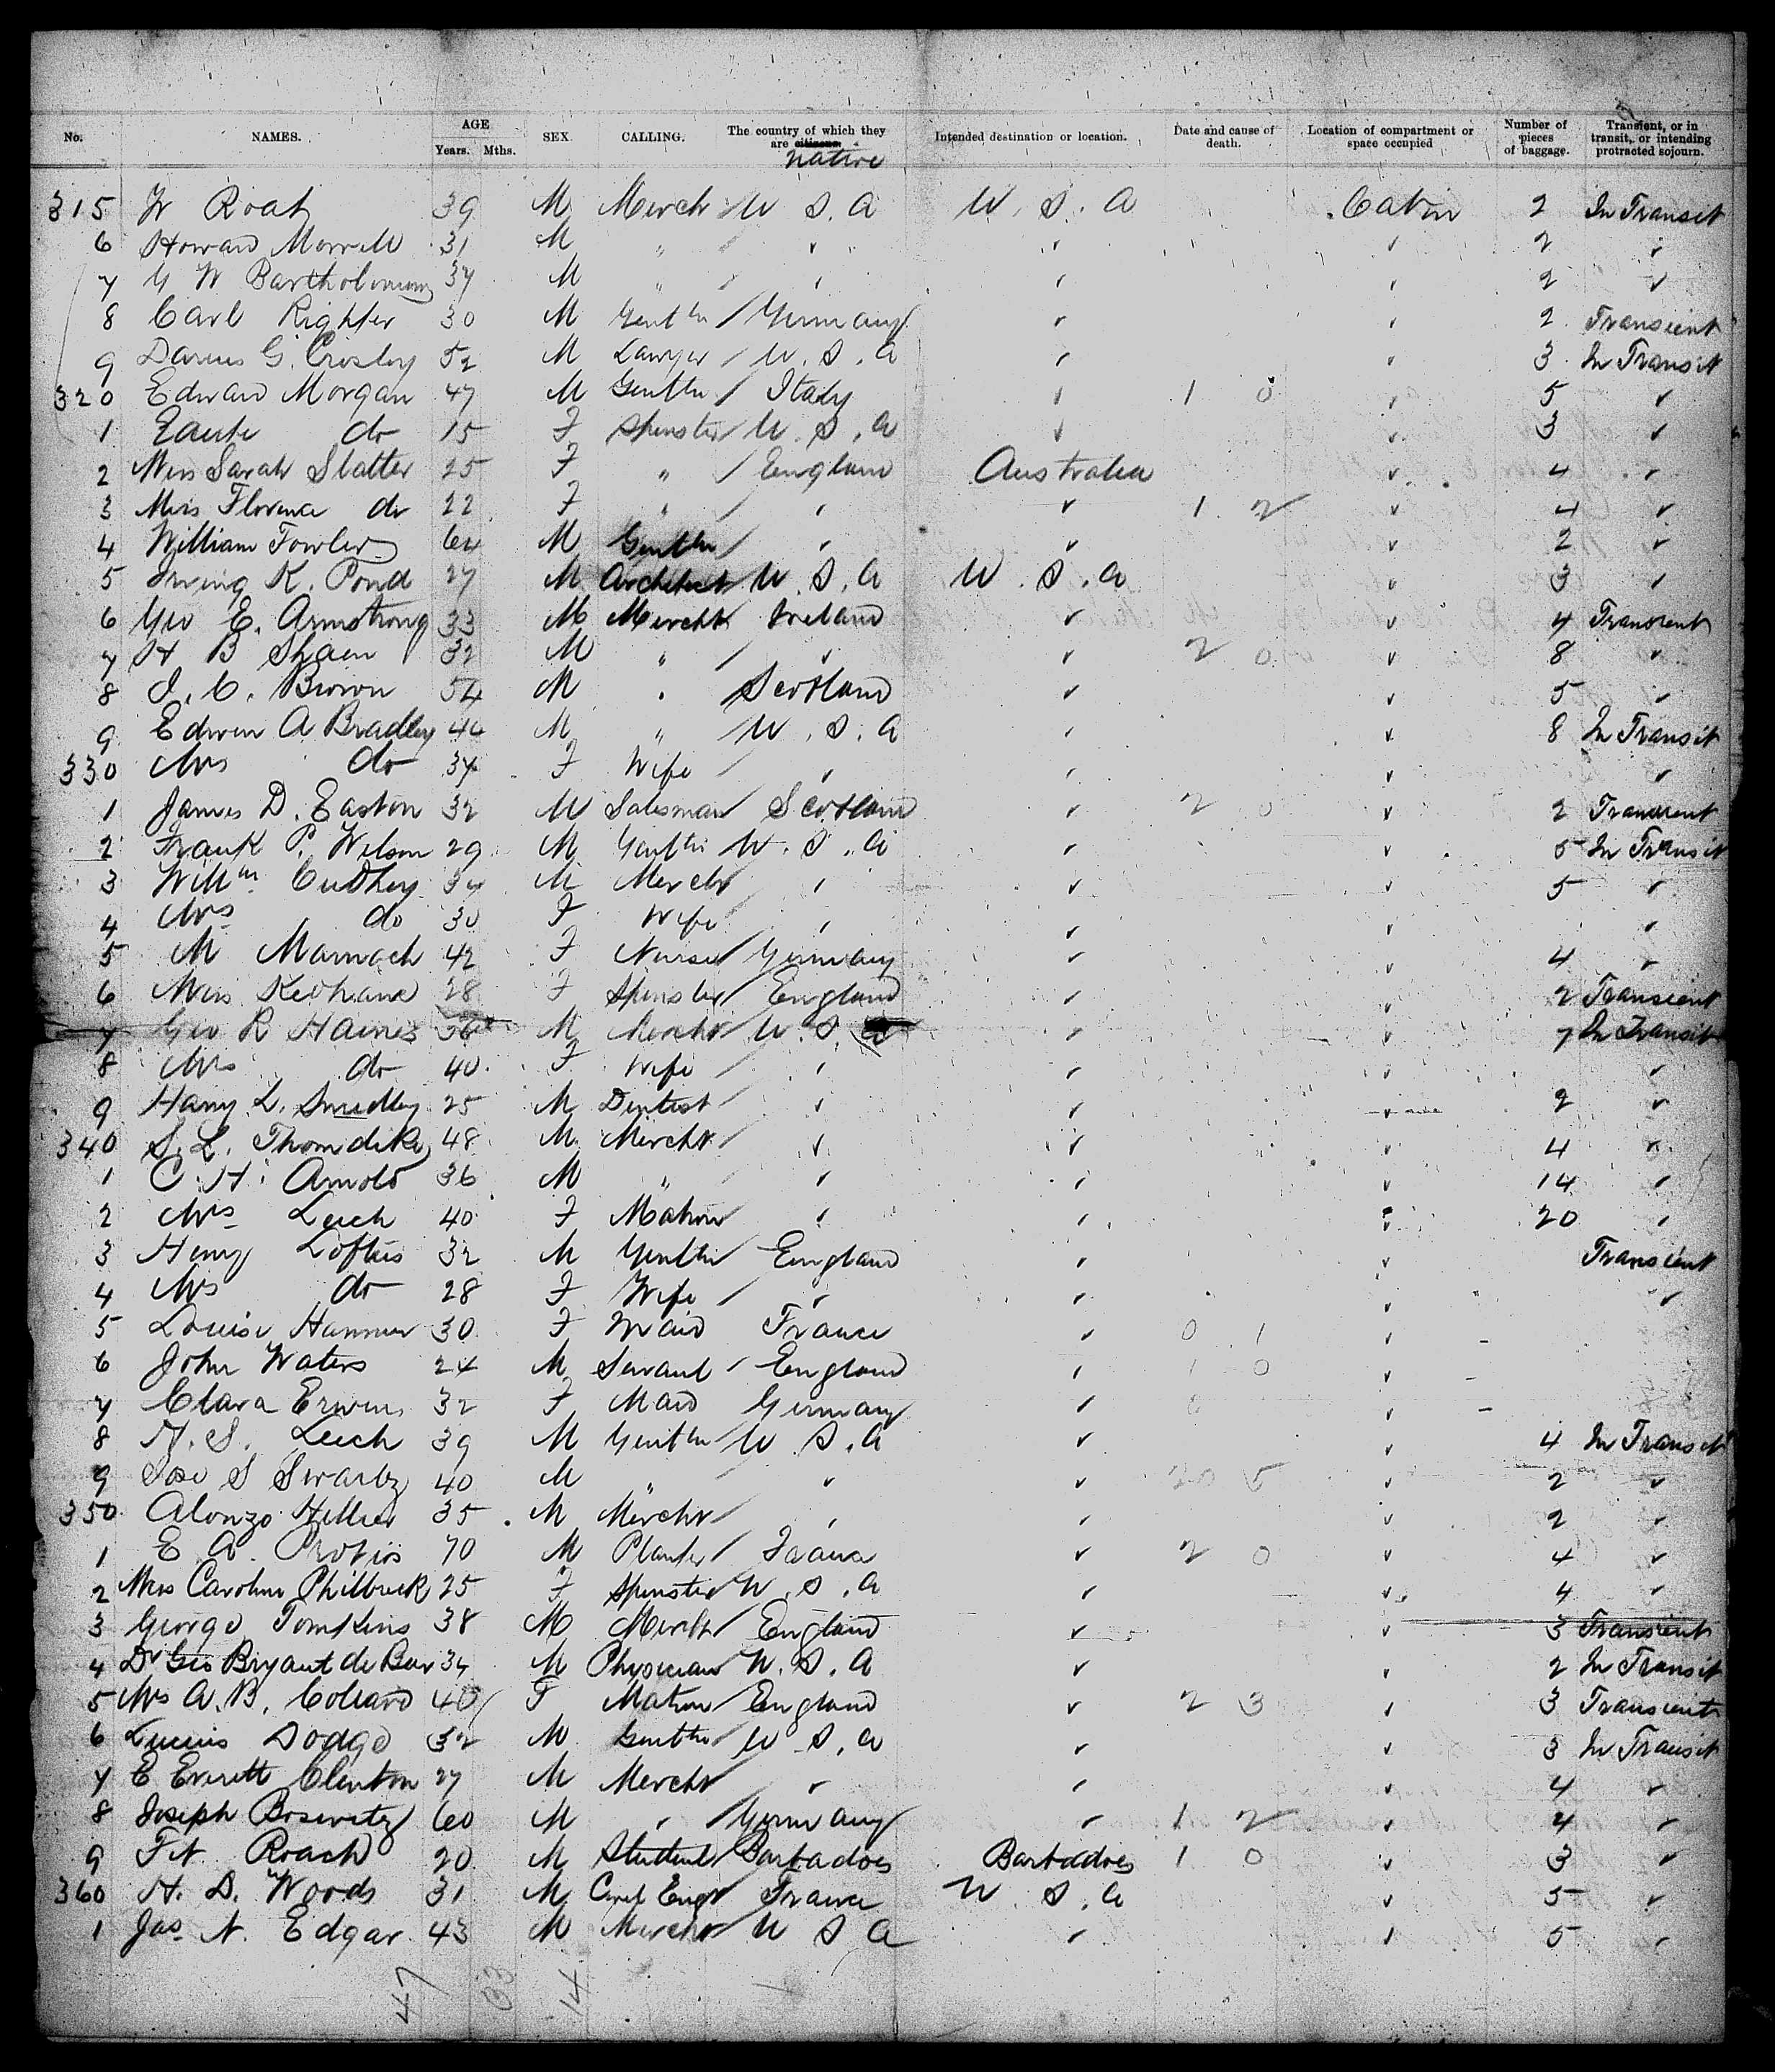 No. NAMES. AGE Years. Mths. SEX. CALLING. The country of which they are citizens. native Intended destination or location. Date and cause of death. Location of compartment or space occupied Number of pieces of baggage. Transient, or in transit, or intending protracted sojourn.
315 W Roah 39 M Mercht U S. A U. S. A Cabin 2 In Transit
6 Howard Morrell 31 M " ✓ ✓ ✓ 2 ✓
7 G W Bartholomew 37 M " ✓ ✓ ✓ 2 ✓
8 Carl Righter 30 M Gentln / Germany ✓ ✓ 2 Transient
9 Darius G. Crosby 52 M Lawyer / U. S. A ✓ ✓ 3 In Transit
320 Edward Morgan 47 M Gentln / Italy ✓ 1 0 ✓ 5 ✓
1 do 15 F Spinster / U. S. A ✓ ✓ 3 ✓
2 Miss Sarah Slatter 25 F " / England Australia ✓ 4 ✓
3 Miss Florence do 22 F " / ✓ ✓ 1 2 ✓ 4 ✓
4 William Fowler 64 M Gentln / ✓ ✓ ✓ 2 ✓
5 Irving K. Pond 27 M Architect U. S. A U. S. A ✓ 3 ✓
6 Geo E. Armstrong 33 M Mercht Ireland ✓ ✓ 4 Transient
7 H B Shaen 32 M " / ✓ ✓ 2 0 ✓ 8 ✓
8 J. C. Brown 54 M " Scotland ✓ ✓ 5 ✓
9 Edwin A Bradley 44 M " U. S. A ✓ ✓ 8 In Transit
330 Mrs do 34 F Wife / ✓ ✓ ✓ ✓
1 James D. Easton 32 M Salesman / Scotland ✓ 2 0 ✓ 2 Transient
2 Frank P. Wilson 29 M Gentln U. S. A ✓ ✓ 5 In Transit
3 Willm Cudhey 34 M Mercht ✓ ✓ ✓ 5 ✓
4 Mrs do 30 F Wife ✓ ✓ ✓ ✓
5 M Marnach 42 F Nurse / Germany ✓ ✓ 4 ✓
6 Miss Keohane 28 F Spinster / England ✓ ✓ 2 Transient
7 Geo R Haines 56 M Mercht U. S. A ✓ ✓ 7 In Transit
8 Mrs do 40 F Wife ✓ ✓ ✓ ✓
9 Harry L. Smedley 25 M Dentist ✓ ✓ ✓ 2 ✓
340 S. L. Thorndike 48 M Mercht ✓ ✓ ✓ 4 ✓
1 C. H. Arnold 36 M " ✓ ✓ ✓ 14 ✓
2 Mrs Leech 40 F Matron ✓ ✓ ✓ 20 ✓
3 Henry Loftus 32 M Gentln / England ✓ ✓ Transient
4 Mrs do 28 F Wife / ✓ ✓ ✓ ✓
5 Louise Hammer 30 F Maid France ✓ 0 1 ✓ -
6 John Waters 24 M Servant / England ✓ 1 0 ✓ -
7 Clara Erwin 32 F Maid Germany ✓ ✓ -
8 H. S. Leech 39 M Gentln U. S. A ✓ ✓ 4 In Transit
9 S Swartz 40 M " ✓ ✓ 20 5 ✓ 2 ✓
350 Alonzo Hillier 35 M Mercht ✓ ✓ ✓ 2 ✓
1 E A 70 M Planter / ✓ 2 0 ✓ 4 ✓
2 Miss Caroline Philbrick 25 F Spinster U. S. A ✓ ✓ 4 ✓
3 George Tompkins 38 M Mercht England ✓ ✓ 3 Transient
4 Dr Geo Bryant de Bar 34 M Physician U. S. A ✓ ✓ 2 In Transit
5 Mrs A. B. Collard 40 F Matron / England ✓ 2 3 ✓ 3 Transient
6 Lucius Dodge 32 M Gentln U S. A ✓ ✓ 3 In Transit
7 C Everett Clinton 27 M Mercht ✓ ✓ ✓ 4 ✓
8 Joseph Boscowitz 60 M ✓ / Germany ✓ 1 2 ✓ 4 ✓
9 Roach 20 M Student / Barbadoes Barbadoes 1 0 ✓ 3 ✓
360 H. D. Woods 31 M Civil Engr France U S. A ✓ 5 ✓
1 Jas N. Edgar 43 M Mercht U S A ✓ ✓ 5 ✓
47 33 14